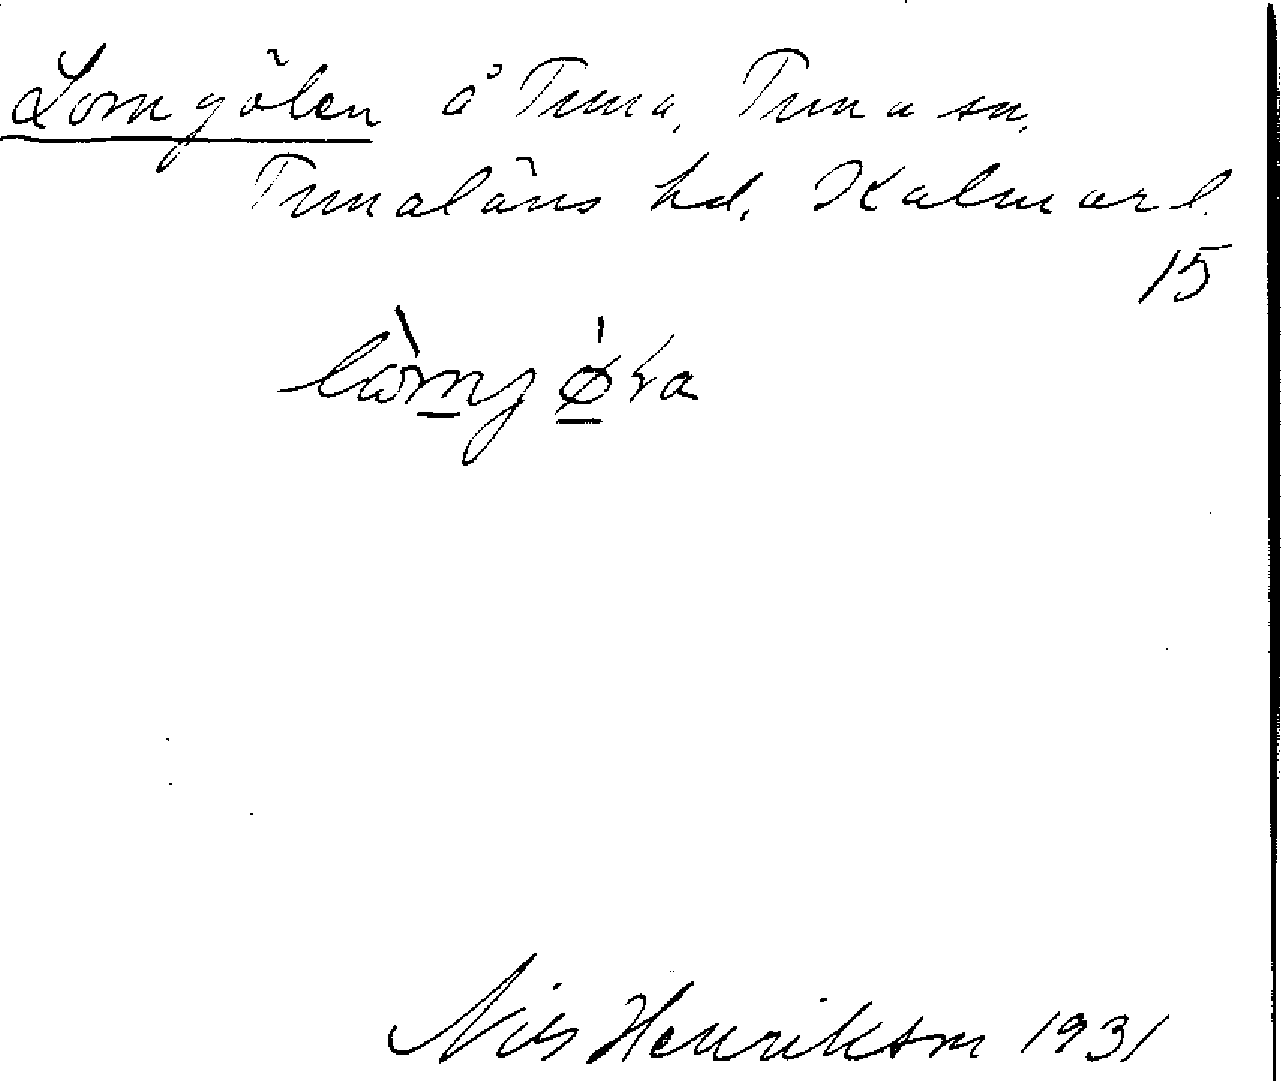 Lomgölen å Tuna, Tuna sn,
Tunaläns hd, Kalmar l.
15
Nils Henrikson 1931